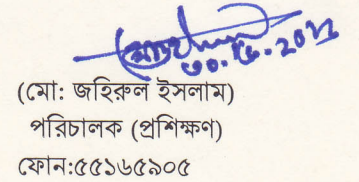 (মো: জহিরুল ইসলাম)
পরিচালক (প্রশিক্ষণ)
ফোন:৫৫১৬৫৯০৫